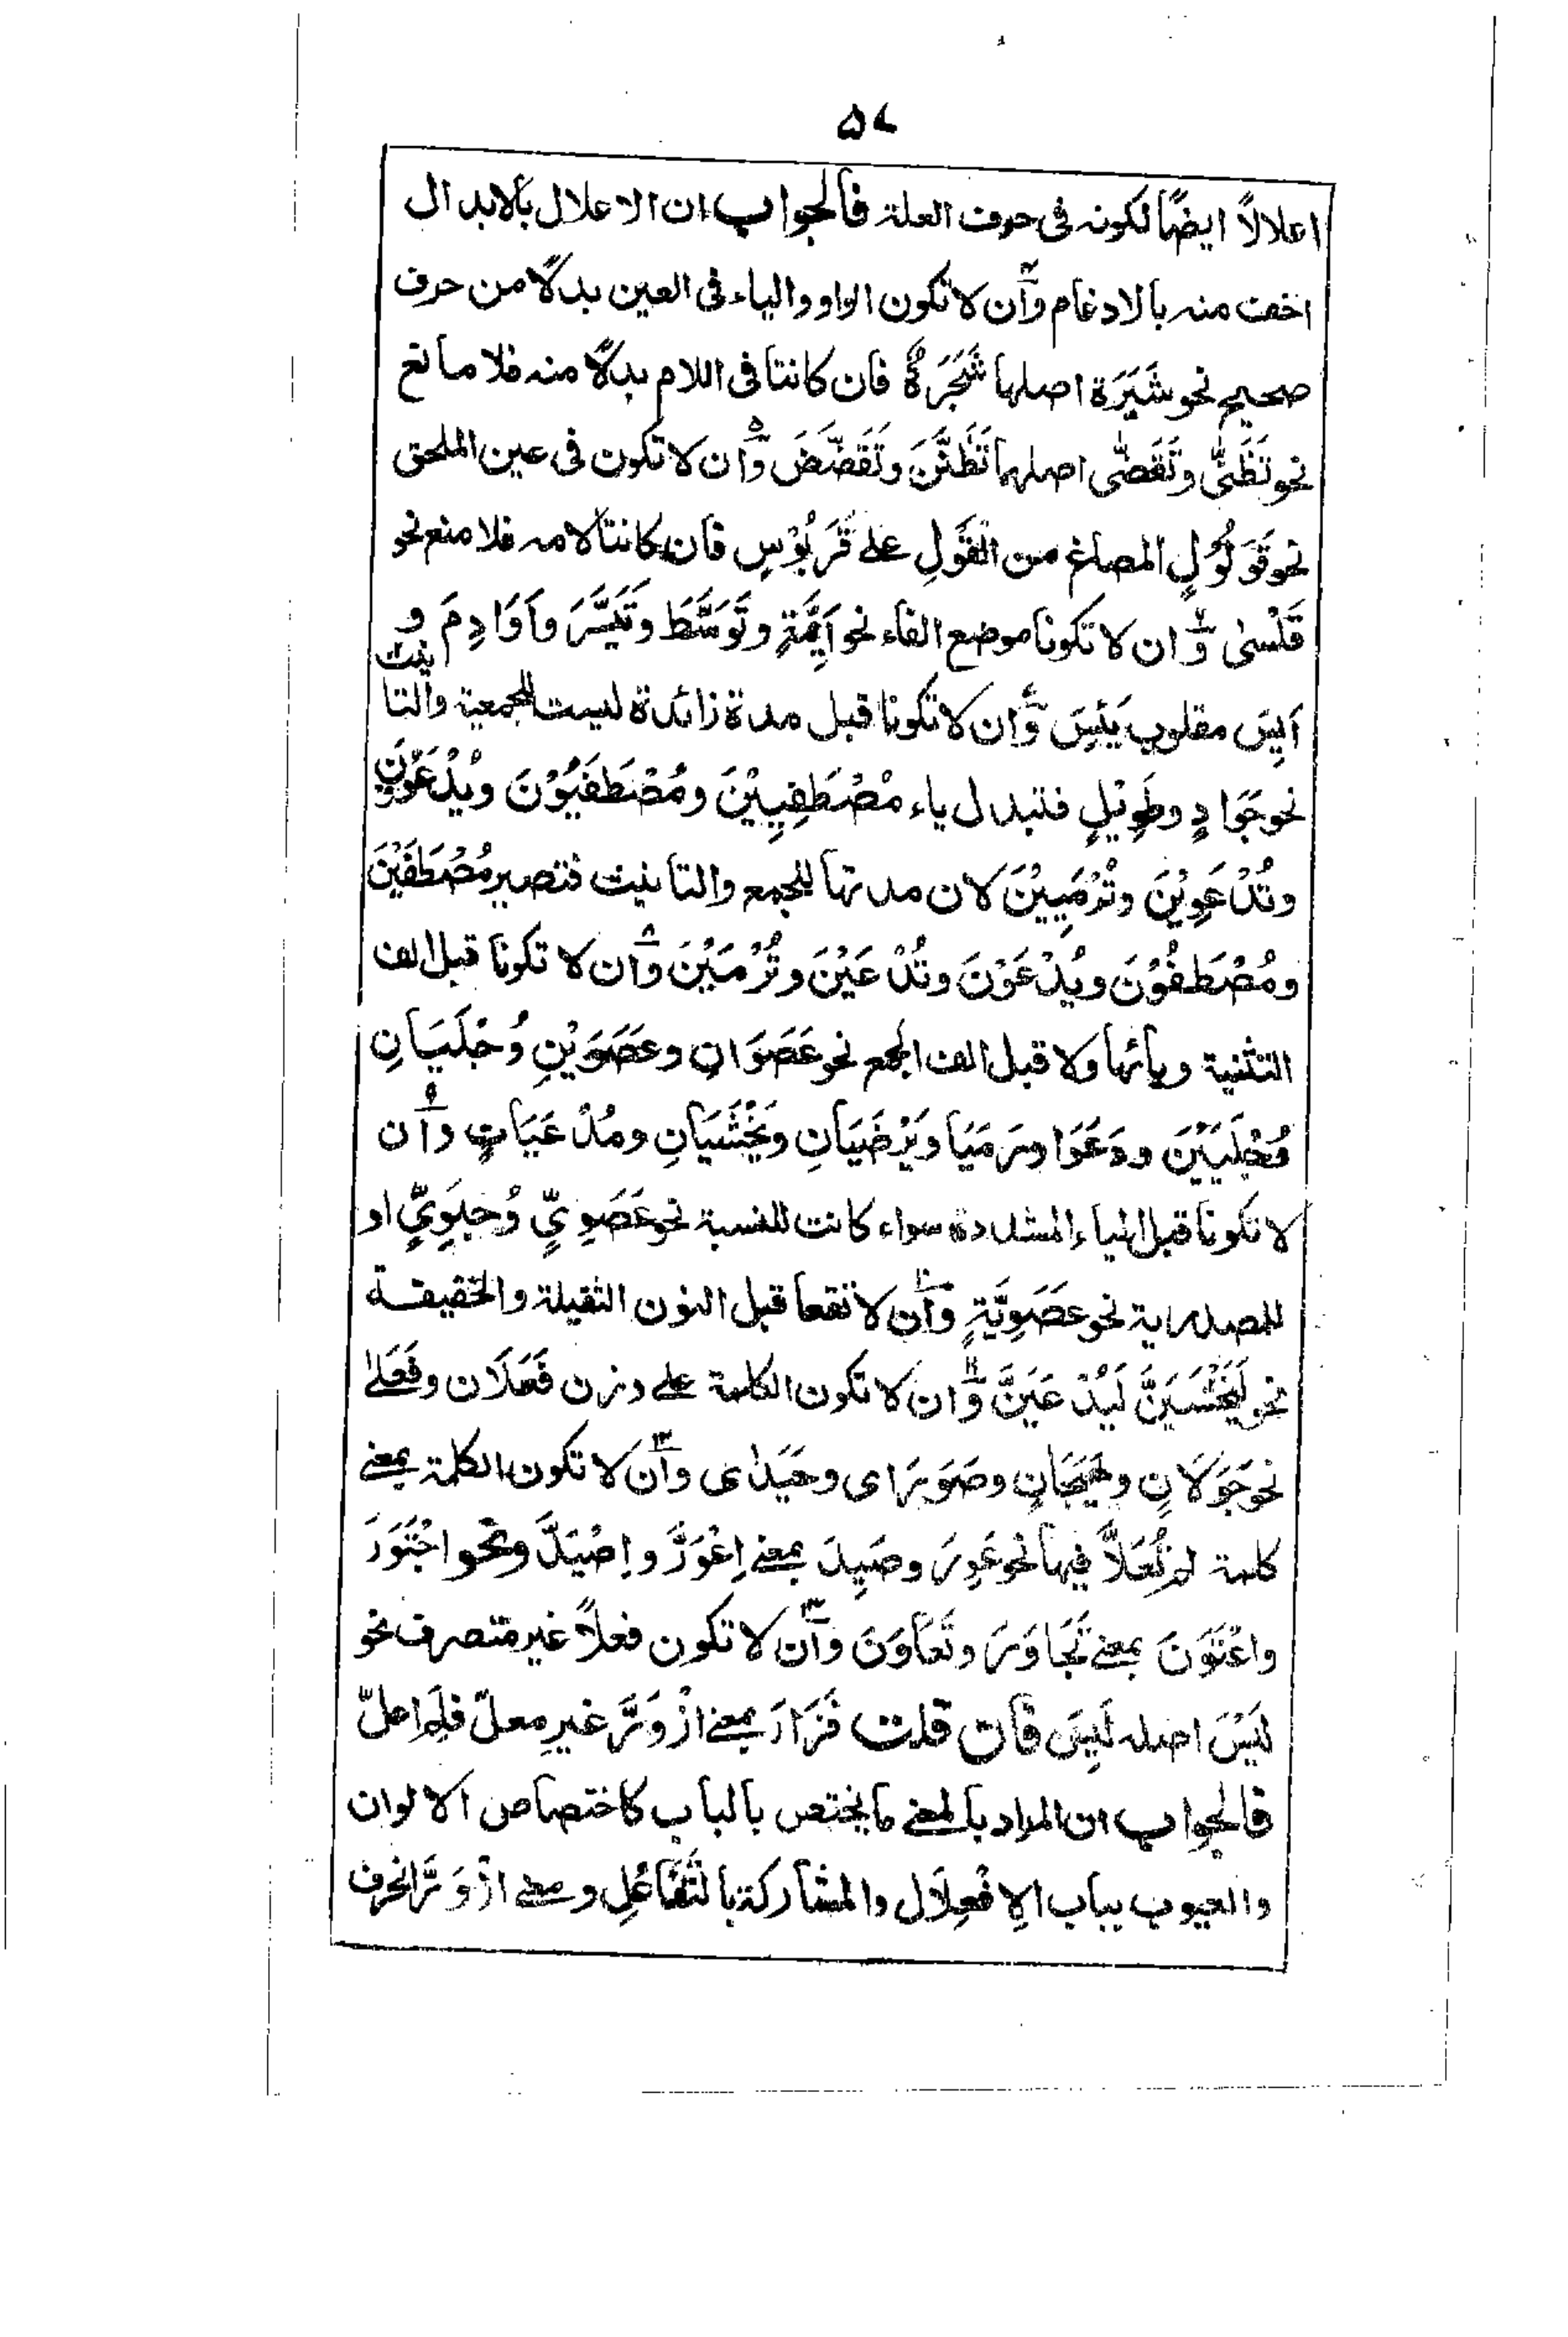 ۵۷
اعلالاً ايضًا لكونه فى حرف العلة فالجواب ان الاعلال بالابدال
اخف منه بالادغام وآن لا تكون الواو والياء فى العين بدلًا من حرف
صحيح نحو شَيَرَة اصلها شَجَرَةٌ فان كانتا فى اللام بدلًا منه فلا مانع
نحو تَظَنّٰى وتَقَضّٰى اصلهما تَظَنَّنَ وتَقَضَّضَ وَّآن لا تكون فى عين الملحق
نحو قَوَلُوْلٍ المصاغ من القَوْلِ على قَرَبُوْسٍ فان كانتا لامه فلا منع نحو
قَلْسٰى وَّان لا تكونا موضع الفاء نحو اَيِمَّةٍ وتَوَسَّطَ وتَيَسَّرَ واَوَادِمَ و
اَيِسَ مقلوب يَئِسَ وَّان لا تكونا قبل مدة زائدة ليست للجمعية والتانيث
نحو جَوَادٍ وطَوِيْلٍ فتبدل ياء مُصْطَفِيِيْنَ ومُصْطَفَيُوْنَ ويُدْعَوُوْنَ
وتُدْعَوِيْنَ وتُرْمَيِيْنَ لان مدتها للجمع والتانيث فتصير مُصْطَفَيْنَ
ومُصْطَفُوْنَ ويُدْعَوْنَ وتُدْعَيْنَ وتُرْمَيْنَ وَّان لا تكونا قبل الف
التثنية ويائها ولا قبل الف الجمع نحو عَصَوَانِ وعَصَوَيْنِ وُحُبْلَيَانِ
وَحُبْلَيَيْنَ ودَعَوَا ورَمَيَا ويَرْضَيَانِ ويَخْشَيَانِ ومُدْعَيَاتٍ وآن
لا تكونا قبل الياء المشددة سواء كانت للنسبة نحو عَصَوِيٍّ وُحبَلَوِيٍّ او
للمصدراية نحو عَصَوِيَّةٍ وآن لا تقعا قبل النون الثقيلة والخفيفة
نحو لَيَخْشَيَنَّ لَيُدْعَيَنَّ وَّان لا تكون الكلمة على وزن فَعَلَان وفَعَلٰى
نحو جَوَلَانٍ وهَيَجَانٍ وصَوَرَاى وحَيَدٰى وآن لا تكون الكلمة بمعنے
كلمة لم تُعَلَّا فيها نحو عَوِرَ وصَيِدَ بمعنے اِعْوَرَّ واِصْيَدَّ ونحو اجْتَوَرَ
واعْتَوَنَ بمعنے تَجَاوَرَ وتَعَاوَنَ وآن لا تكون فعلاً غير متصرف نحو
لَيْسَ اصله لَيِسَ فان قلت فَزَارَ بمعنے ازْوَرَّ غيرِ معلّ فلِمَ اعلّ
فالجواب ان المراد بالمعنے ما يختص بالباب كاختصاص الالوان
والعيوب بباب الِافْعِلَال والمشاركة بالتَّفَاعُلِ ومعنے ازْوَرَّ انحرف